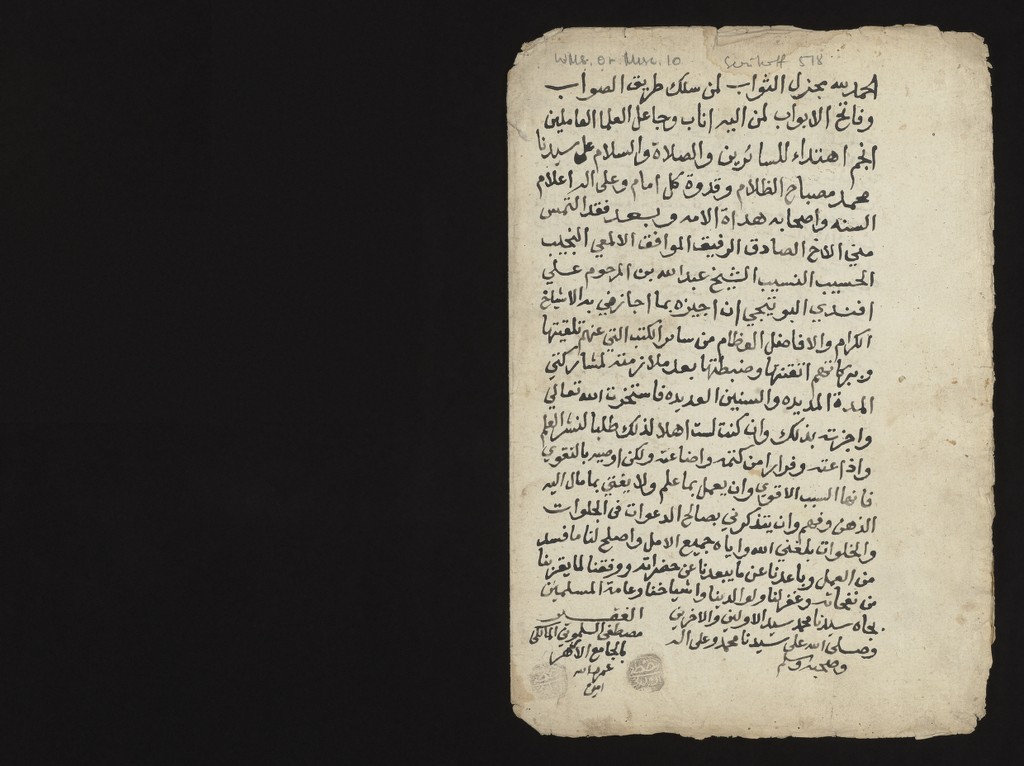 WMS. Or. Misc. 10 Serikoff 518
الحمد لله مجزل الثواب لمن سلك طريق الصواب
وفاتح الابواب لمن اليه اناب وجاعل العلما العاملين
انجم اهتداء للسائرين والصلاة والسلام على سيدنا
محمد مصباح الظلام وقدوة كل امام وعلى اله اعلام
السنه واصحابه هداة الامه وبعد فقد التمس
مني الاخ الصادق الرفيق الموافق الالمعي النجيب
الحسيب النسيب الشيخ عبد الله بن المرحوم علي
افندي البوتيجي ان اجيزه بما اجازني به الاشياخ
الكرام والافاضل العظام من سائر الكتب التي عنهم تلقيتها
وببركاتهم اتقنتها وضبطتها بعد ملازمته لمشاركتي
المدة المديده والسنين العديده فاستخرت الله تعالي
واجزته بذلك وان كنت لست اهلا لذلك طلبا لنشر العلم
واذاعته وفرارا من كتمه واضاعته ولكن اوصيه بالتقوي
فانها السبب الاقوي وان يعمل بما علم ولا يفتي بما مال اليه
الذهن وفهم وان يتذكرني بصالح الدعوات في الخلوات
والجلوات بلغني الله واياه جميع الامل واصلح لنا ما فسد
من العمل وباعدنا عن ما يبعدنا عن حضراته ووفقنا لما يقربنا
من نفحاته وغفر لنا ولوالدينا واشياخنا وعامة المسلمين
بجاه سيدنا محمد سيد الاولين والاخرين
وصلى الله على سيدنا محمد وعلى اله
وصحبه وسلم
الفقير
مصطفى السلموني المالكي
بالجامع الازهر
عمره الله
امين